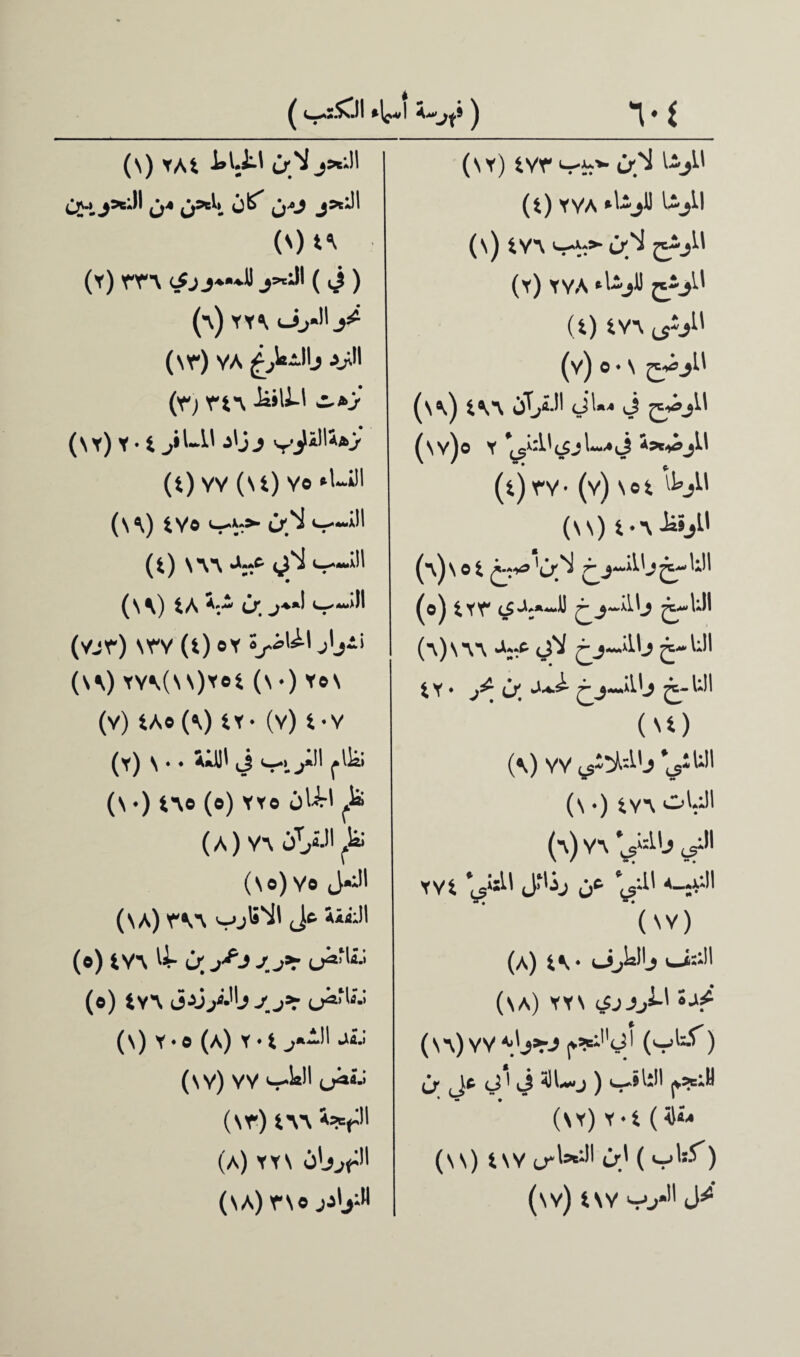 ٦٠٤ ( فهرسة أسماء الكتب )
الموشا لابن حبيب ٤٧٣ (١٢)
الموشا للوشاء ٢٧٨ (٤)
الموشح لابن حبيب ٤٧٦ (١)
الموشح للوشاء ٢٧٨ (٢)
الموشى ٤٧٦ (٤)
الموضح ٥٠١ (٧)
الموضح في معاني القرآن ٤٩٦ (١٩)
الموضحة في مساوي المتنبي ٢ ٥(١٧)
الموطأ ١٥٤ (٧) ٣٧٠ (٤)
٤٠٦ (١١)
الناسخ والمنسوخ لابن أصبغ ١٥٤(٦)
الناسخ والمنسوخ للسعيدي ٤٢٣ (٥)
الناسخ والمنسوخ لأبي عبيد ١٦٦(٦)
الناسخ والمنسوخ لمحمد بن بحر ٤٢٠
(١٤)
الناشي والتلاشي ٧٧ (٩)
النبات ٤٧٦ (١٠)
النبي والمتنبي ٧٦ (٦)
النبيه المنبي عن رذائل المتنبي ٢٧٤
(١٧)
النتف والطرف ٤٩٠ (٨)
الحروري ٢٢٦ (١٨)
(كتاب) أبي النجم ٧٧ (١٦)
للنجم الثاقب ( رسالة في أبي علي بن
مقلة ) ٢٠٤ (١٢)
(كتاب) ابن النحاس ٤١٧ (١١)
نحل العرب ٤١٧ (١٧)
النحو لابن الخياط ٢٨٤ (١)
النحو ومن كان يلحن من النحويين
٤٩ (١)
( في ) النحو للمعمري ٣٣٦ (٢)
نحو العرف ٢٢٩ (٦)
النرد والشطرنج ٧٨ (١٣)
نزهت الحافظ ٣٤٦ (٣)
نزهة القلوب وزاد المسافر ٢٠٤ (١٢)
النساء ٧٥ (١٤) ٧٧ (٤)
النسب لابن حبيب ٤٧٥ (١٩)
النسب لأبي عبيد ١٦٦ (٤)
النسب لعمر بن شبة ٤٨ (١٩)
نشوار المحاضرة ٥٢ (٤) ١٣٧ (٣و٧)
٢٥١ (١٠) ٢٥٤(١١)٢٧٩ (١٩)
٤٠٧ (٧) ٤٢٠ (٩) ٤٨٥ (٧)
نظام الغريب في اللغة ١٠٠ (٢)
نظم الجمان ٢٢٥ (٥) ٤٦٥ (١٠)
نظم القرآن ٧٦ (٨)
النعل ٧٥ (١٥)
النفقة على الأقارب ٣٩٦ (١٨)
نقائض جرير وعمر بن لجا ٤٧٦ (٥)
نقائض جرير والفرزدق ٤٧٦ (٥)
نقد الشعر ٢٠٤ (٨) ٢٠٥ (١)
نقض الطب ٧٧ (١٧)
النهجة ٤٦٦ (١٣)
النهروان ٢٢١ (٨)
النوادر ٣١٥ (١٨)